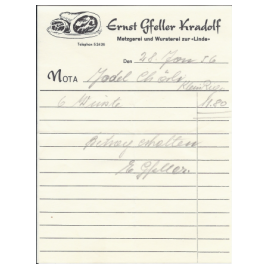 Ernst Gfeller Kradolf
Metzgerei und Wursterei zur «Linde»
Telephon 53436
Den 28 Jan 56
NOTA Jodel Chörli
6 Würste 11.80
Betrag erhalten
E Gfeller